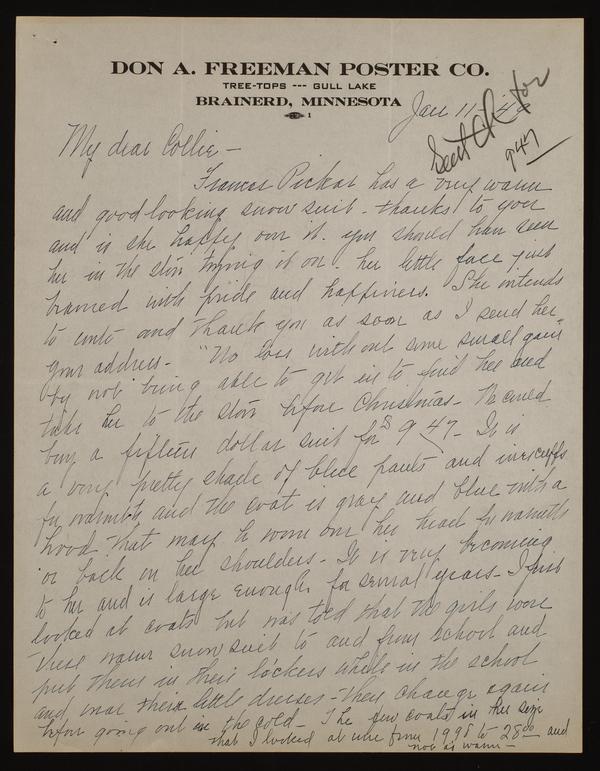 DON A. FREEMAN POSTER CO.
TREE-TOPS --- GULL LAKE
BRAINERD, MINNESOTA
1
Jan 11 -
Sent Ck for
9 47
My dear Collie -
Frances Pickar has a very warm
and good looking snow suit - thanks to you
and is she happy over it. You should have seen
her in the store trying it on - her little face just
beamed with pride and happiness. She intends
to write and thank you as soon as I send her
your address. - "No loss without some small gain"
by not being able to get in to find her and
take her to the store before Christmas - We could
buy a fifteen dollar suit for $ 9 47 - It is
a very pretty shade of blue pants and
for warmth and the coat is gray and blue with a
hood that may be worn over her head for warmth
or back on her shoulders - It is very becoming
to her and is large enough for several years - I first
looked at coats but was told that the girls wore
these warm snow suits to and from school and
put them in their lockers while in the school
and wear their little dresses - then change again
before going out in the cold - The few coats in her size
that I looked at were from 19 98 to 28 00 and
not as warm -